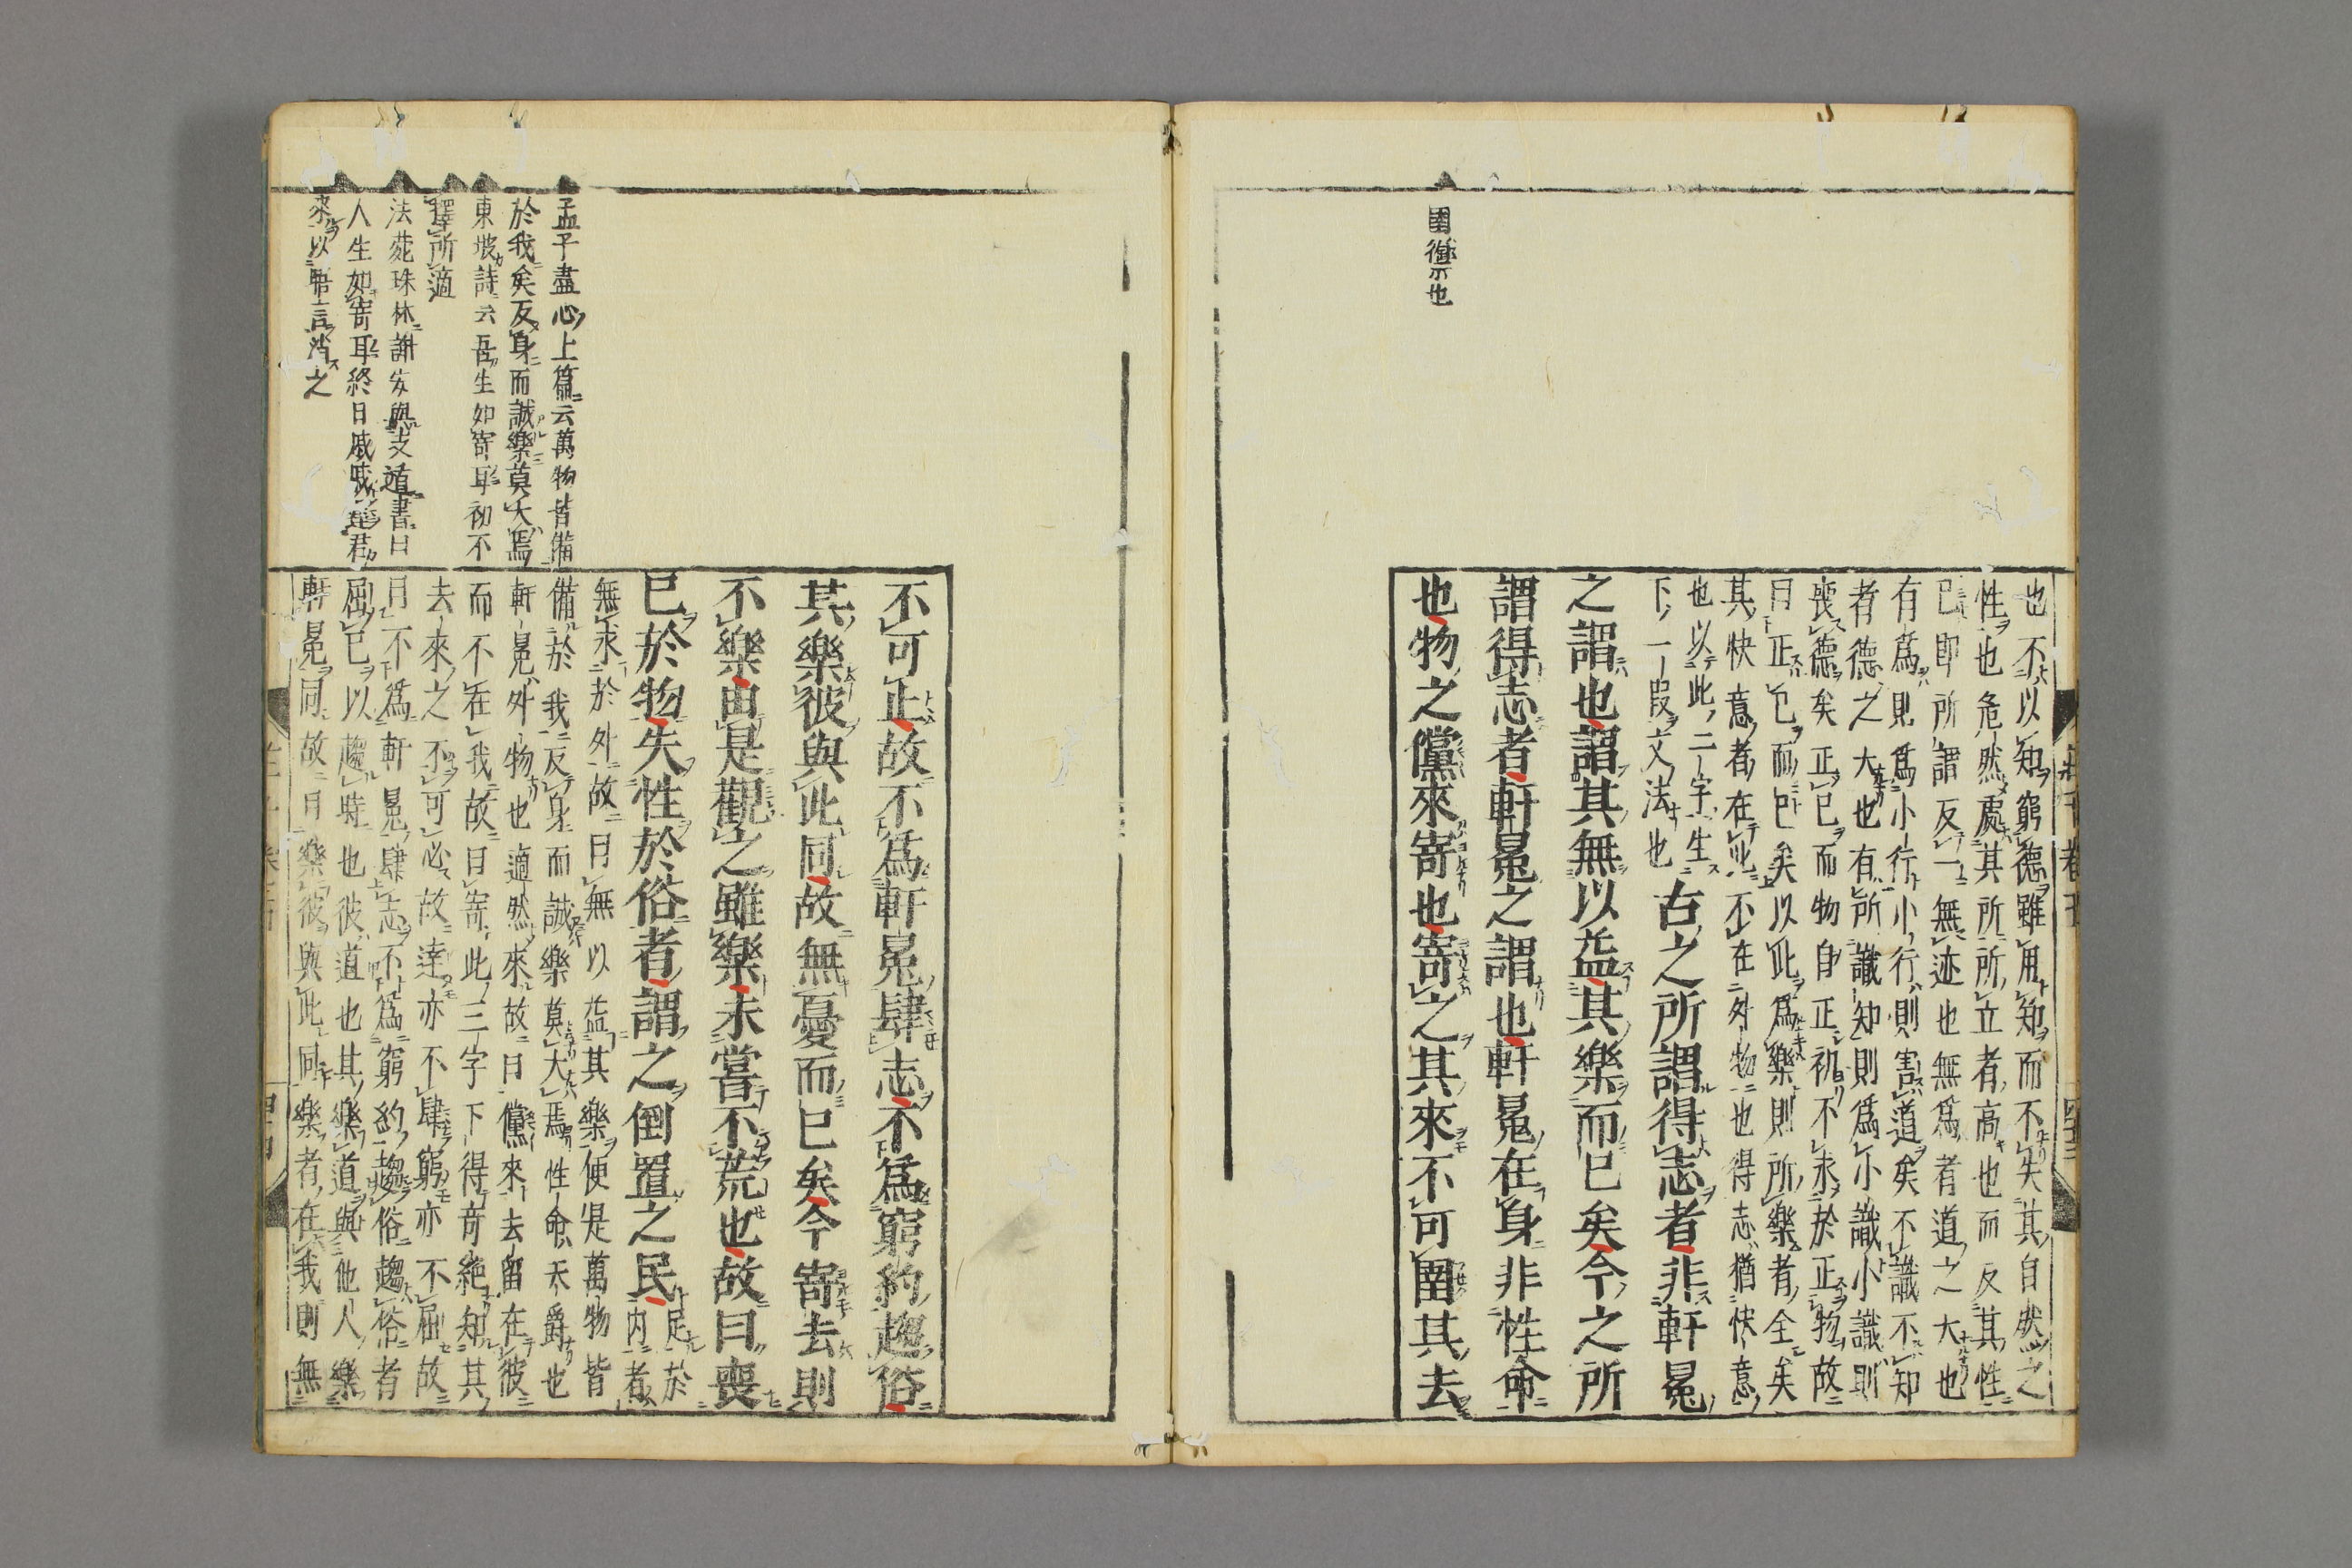 圉禦也
也不以知窮德雖用知而不失其自然之
性也危然處其所所立者高也而反其性
已即所謂反一無迹也無為者道之大也
有為則為小行小行則害道矣不識不知
者德之大也有所識知則為小識小識則
喪德矣正已而物自正初不求於正物故
曰正已而已矣以此為樂則所樂者全矣
其快意者在此不在外物也得志猶快意
也以此二字生
下一段文法也
古之所謂得志者非軒冕
之謂也謂其無以益其樂而已矣今之所
謂得志者軒冕之謂也軒冕在身非性命
也物之儻來寄也寄之其來不可圉其去
孟子盡心上篇云萬物皆備
於我矣反身而誠樂莫大焉
東坡詩云吾生如寄耳初不
擇所適
法苑珠林謝安與支遁書曰
人生如寄耳終日戚戚遲君
來以晤言消之
不可止故不為軒冕肆志不為窮約趨俗
其樂彼與此同故無憂而已矣今寄去則
不樂由是觀之雖樂未嘗不荒也故曰喪
已於物失性於俗者謂之倒置之民
足於
內者
無求於外故曰無以益其樂便是萬物皆
備於我反身而誠樂莫大焉性命天爵也
軒冕外物也適然來故曰儻來去留在彼
而不在我故曰寄此三字下得奇絕知其
去來之不可必故達亦不肆窮亦不屈故
曰不為軒冕肆志不為窮約趨俗趨俗者
屈已以趨時也彼道也其樂道與他人樂
軒冕同故曰樂彼與此同樂者在我則無